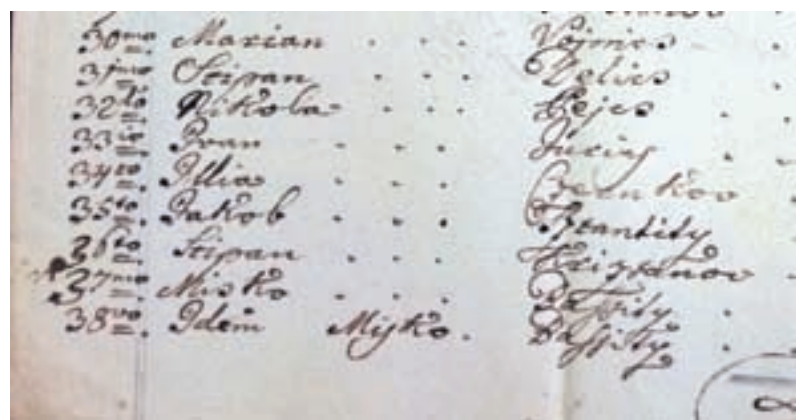 30mo Marian . . . Vojnics .
31mo Stipan . . . Delics .
32do Nikola . . . Pejes .
33io Ivan . . . Jurity . .
34to Illia . . . Czernkov .
35to Jakob . . . Frantity .
36to Stipan . . . Krisztanov .
37mo Misko . . . Bassity .
38vo Idem Mysko . Bassity .